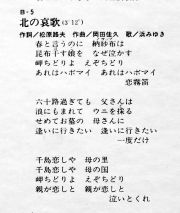 B-5
北の哀歌 (3′12″)
作詞／松原路夫 作曲／岡田佳久 歌／浜みゆき
春と言うのに 納紗布は
昆布干す娘を なぜ泣かす
岬ちどりよ えぞちどり
あれはハボマイ あれはハボマイ
恋霧笛
六十路過ぎても 父さんは
浪にもまれて ウニを採る
せめてお墓の 母さんに
逢いに行きたい 逢いに行きたい
一度だけ
千島恋しや 母の里
千島恋しや 母の国
岬ちどりよ えぞちどり
親が恋しと 親が恋しと
泣いとくれ